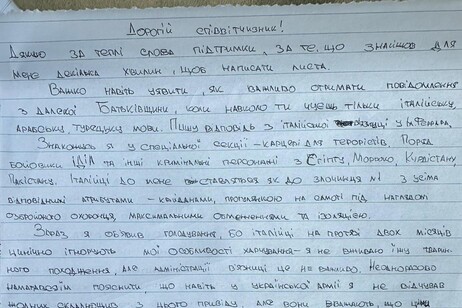 Дорогий співвітчизник!
Дякую за теплі слова підтримки, за те, що знайшов для
мене декілька хвилин, щоб написати листа.
Важко навіть уявити, як важливо отримати повідомлення
з далекої Батьківщини, коли навколо ти чуєш тільки італійську,
арабську, турецьку мови. Пишу відповідь з італійської в'язниці у м. Феррара.
Знаходжусь я у спеціальної секції - карцері для терористів. Поряд
бойовики ІДІЛ та інші кримінальні персонажі з Єгипту, Мороко, Курдістану,
Пакістану. Італійці до мене ставляться як до злочинця №1 з усіма
відповідними атрибутами - кайданами, прогулянкою на самоті під наглядом
озброєного охоронця, максимальними обмеженнями та ізоляцією.
Зараз я об'явив голодування, бо італійці на протязі двох місяців
цинічно ігнорують мої особливості харчування - я не вживаю їжу тварин-
ного походження, але адміністрації в'язниці це не важливо. Неодноразово
намагався їм пояснити, що навіть у Української Армії я не відчував
жодних складнощів з цього приводу, але вони вважають що ці